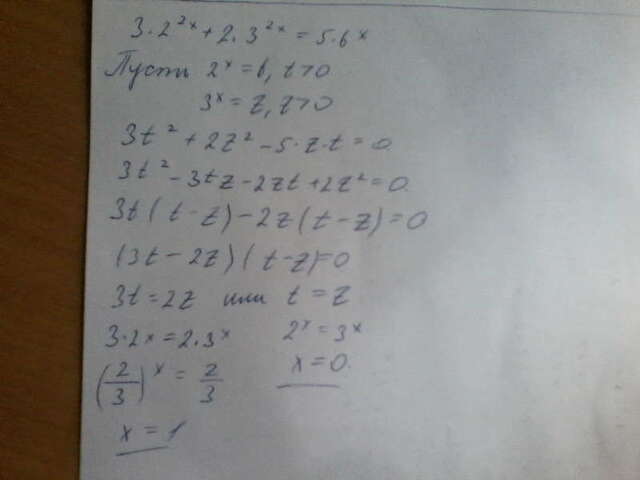 3·2²ˣ + 2·3²ˣ = 5·6ˣ
Пусть 2ˣ = t, t>0
3ˣ = z, z>0
3t² + 2z² - 5·z·t = 0
3t² - 3tz - 2zt + 2z² = 0
3t(t-z) - 2z(t-z) = 0
(3t - 2z)(t-z) = 0
3t = 2z или t = z
3·2ˣ = 2·3ˣ 2ˣ = 3ˣ
(2/3)ˣ = 2/3 x = 0
x = 1